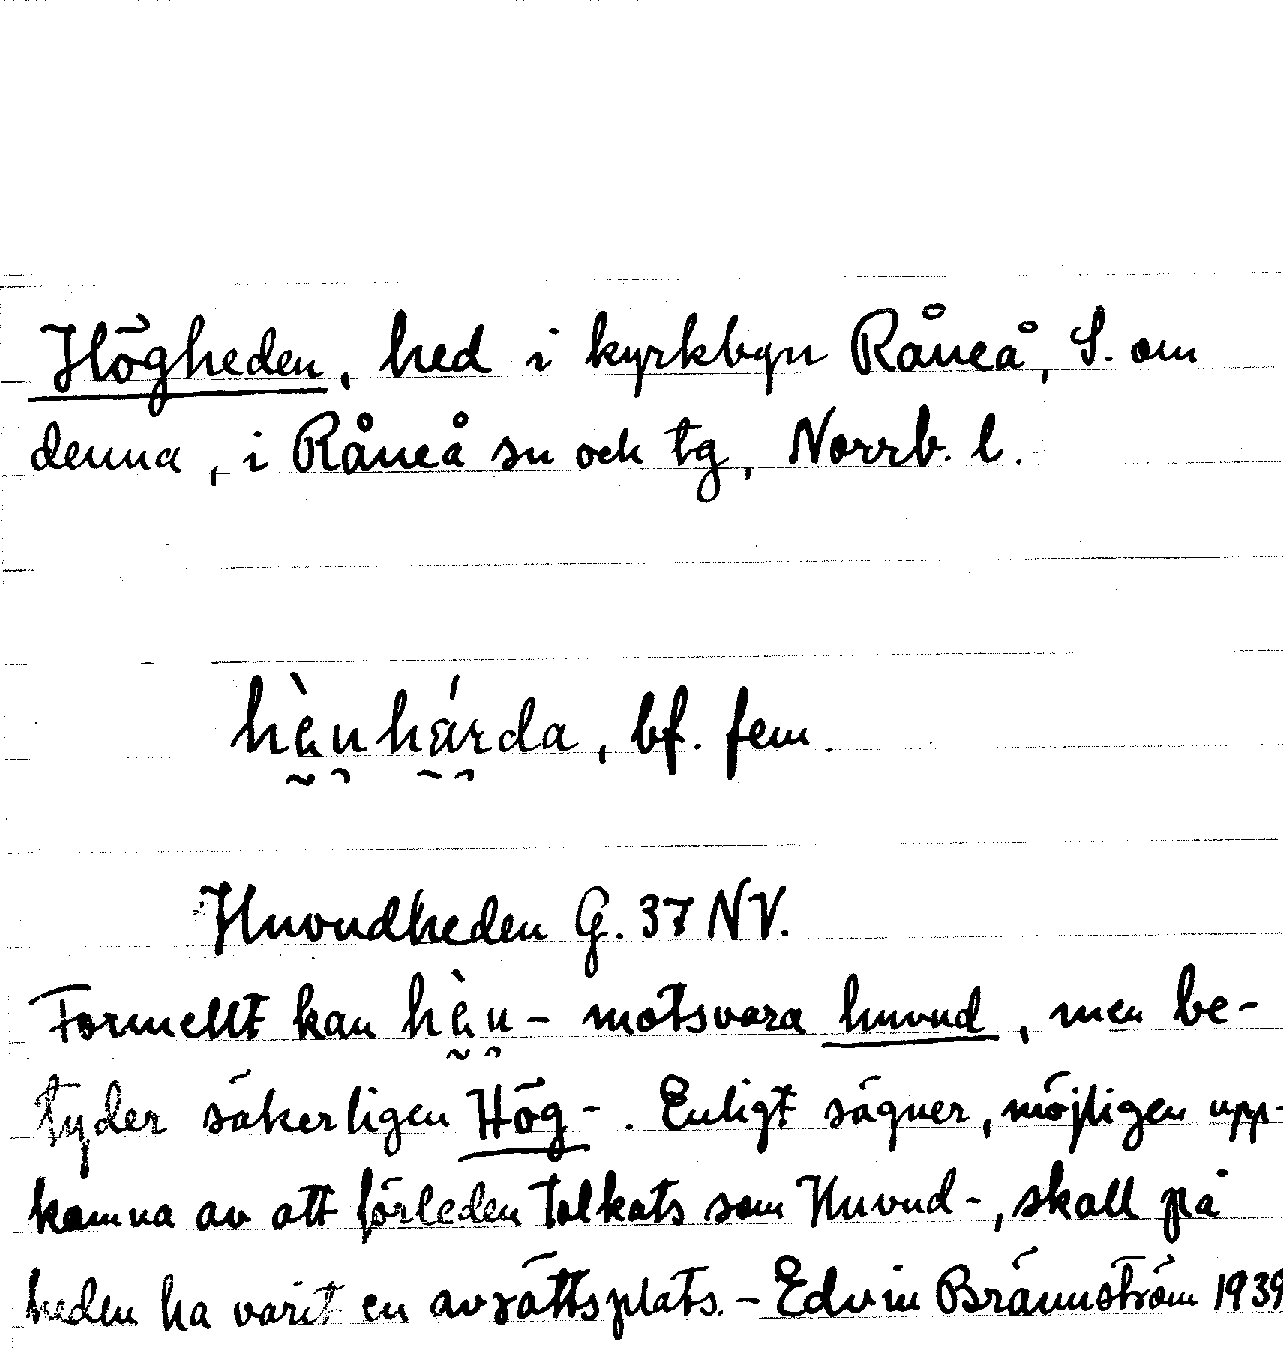 Högheden, hed i kyrkbyn Råneå, S. om
denna, i Råneå sn och tg, Norrb. l.
hὲ̰n̯há̯r̯da, bf. fem.
Huvudheden G. 37 NV.
Formellt kan hὲ̰n̯- motsvara huvud, men be-
tyder säkerligen Hög-. Enligt sägner, möjligen upp-
komna av att förleden tolkats som Huvud-, skall på
heden ha varit en avrättsplats. - Edvin Brännström 1939